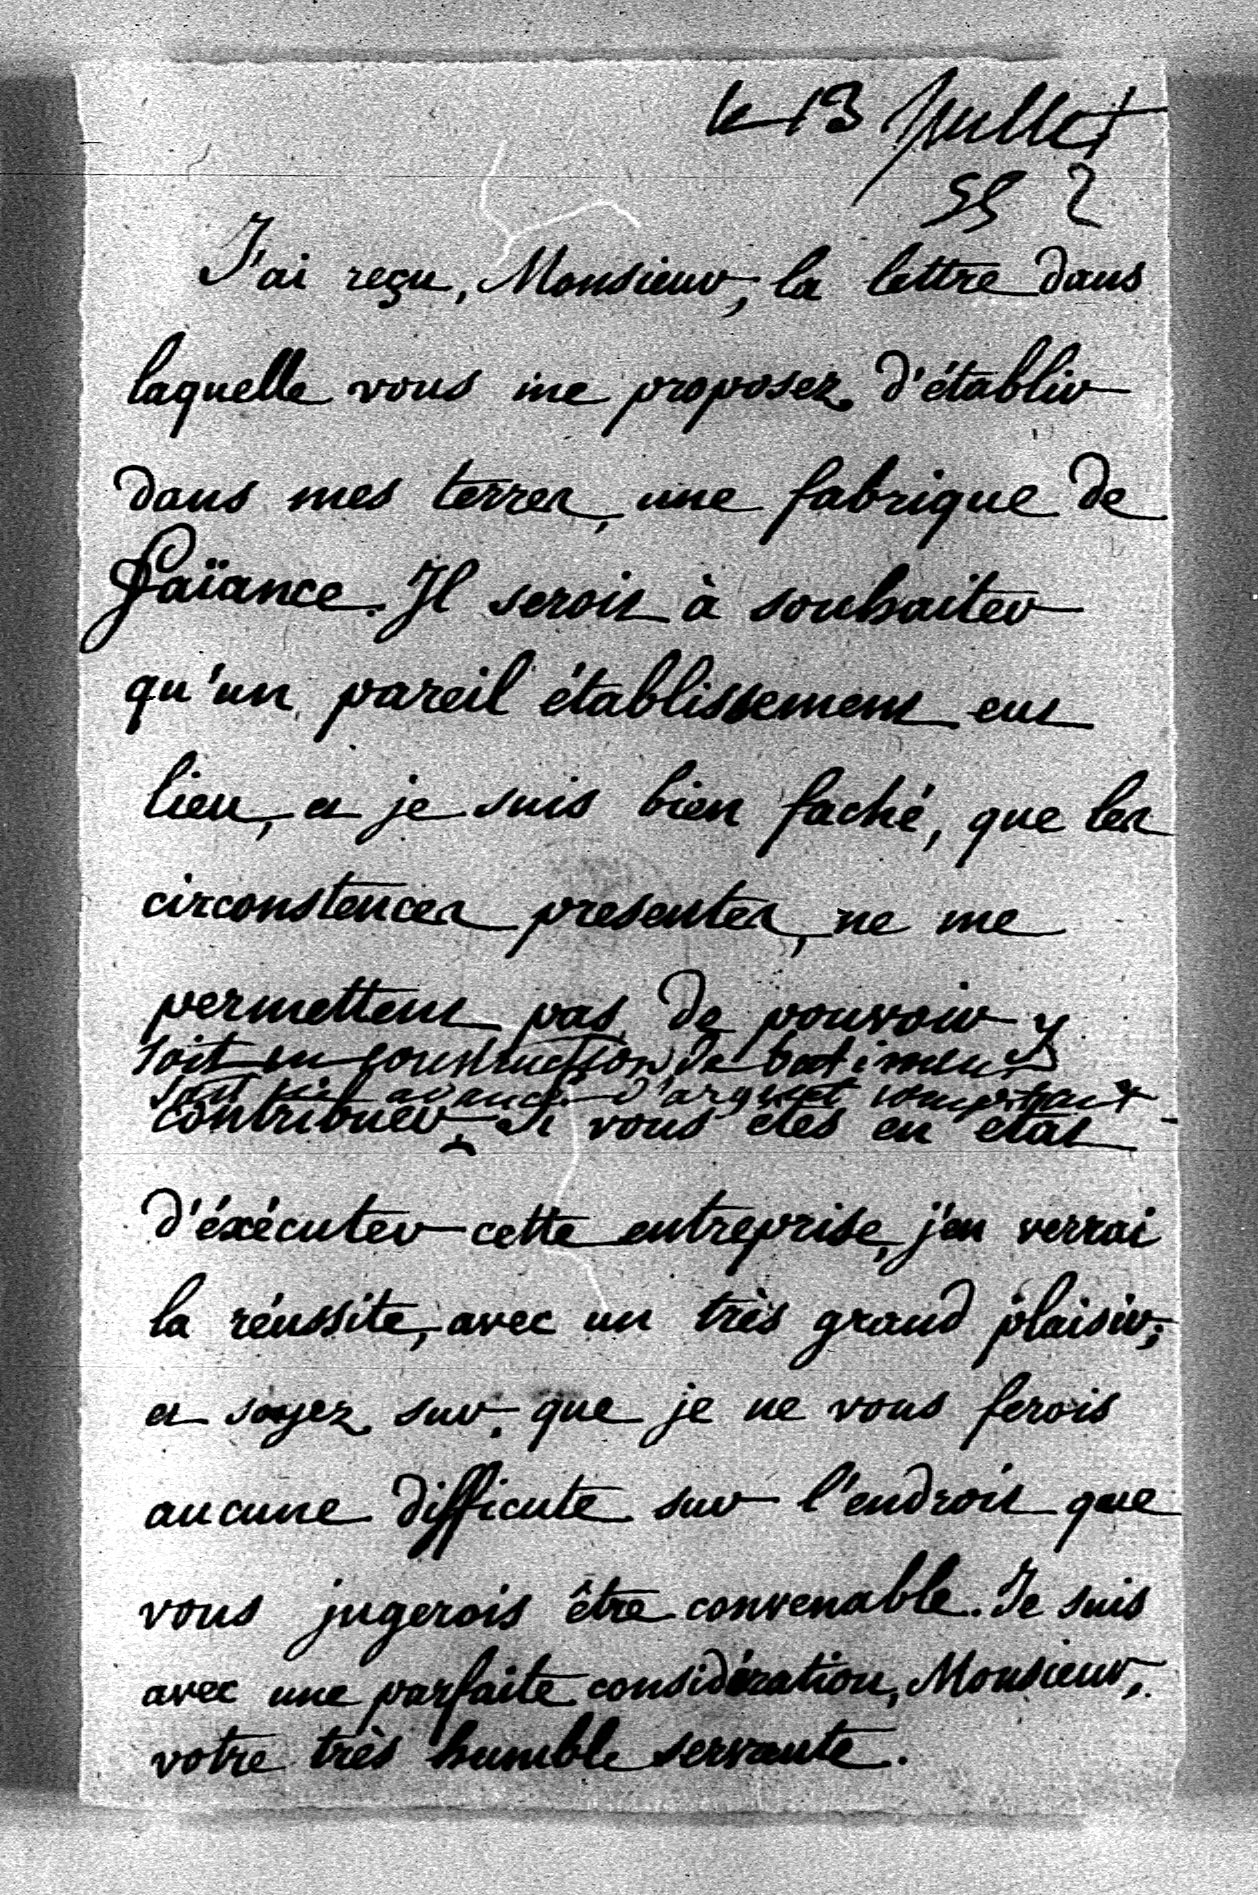 le 13 Juillet
55 2
J'ai reçu, Monsieur, la lettre dans
laquelle vous me proposez d'établir
dans mes terres, une fabrique de
Faïance. Il seroit à souhaiter
qu'un pareil établissement eut
lieu, et je suis bien faché, que les
circonstences presentes, ne me
permettent pas de pouvoir y
soit en construction de batiments
soit en avance d'argent comptant
contribuer. Si vous etes en état
d'éxécuter cette entreprise, j'en verrai
la réussite, avec un très grand plaisir;
et soyez sur, que je ne vous ferois
aucune difficute sur l'endroit que
vous jugerois être convenable. Je suis
avec une parfaite considération, Monsieur,
votre très humble servante.